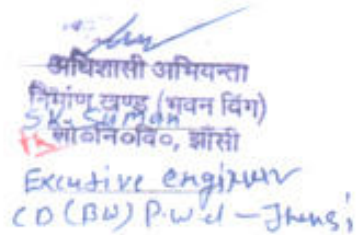 अधिशासी अभियन्ता
निर्माण खण्ड (भवन विंग)
S.K. Suman
लो०नि०वि०, झाँसी
Excutive engineer
CD (BW) P.W.d - Jhansi